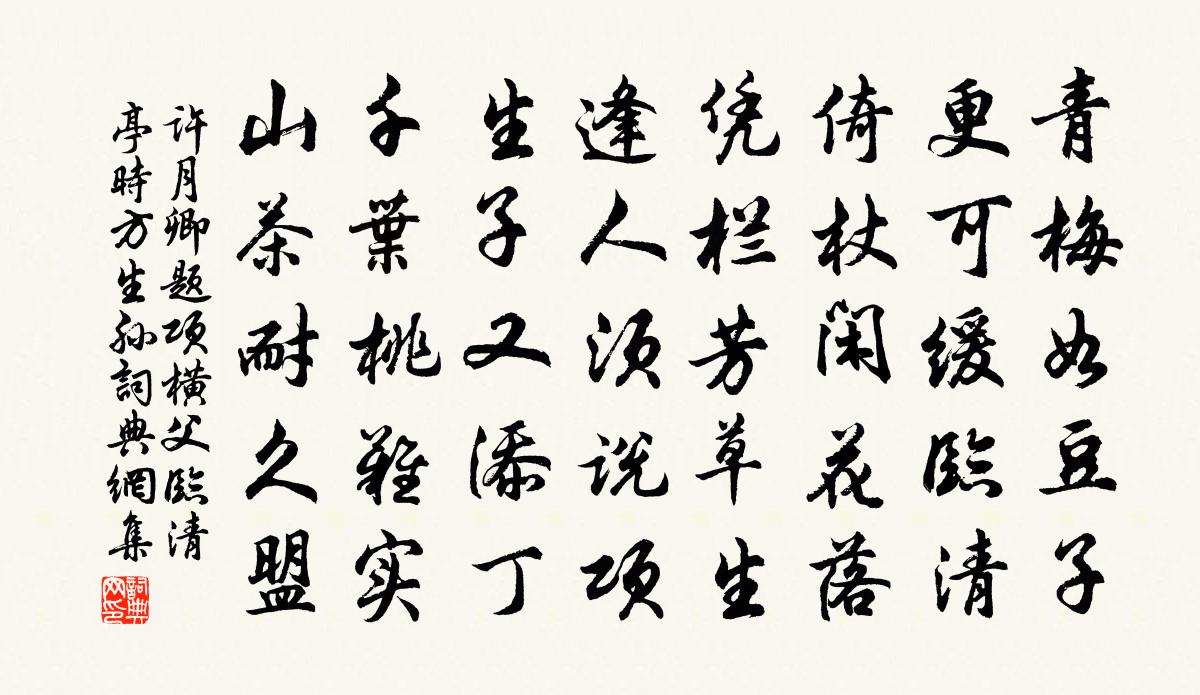 青梅如豆子
更可缓臨清
倚杖閑花落
凭栏芳草生
逢人须说项
生子又添丁
千葉桃難实
山茶耐久盟
许月卿题项横父臨清
亭時方生孙詞典網集
詞典
网印